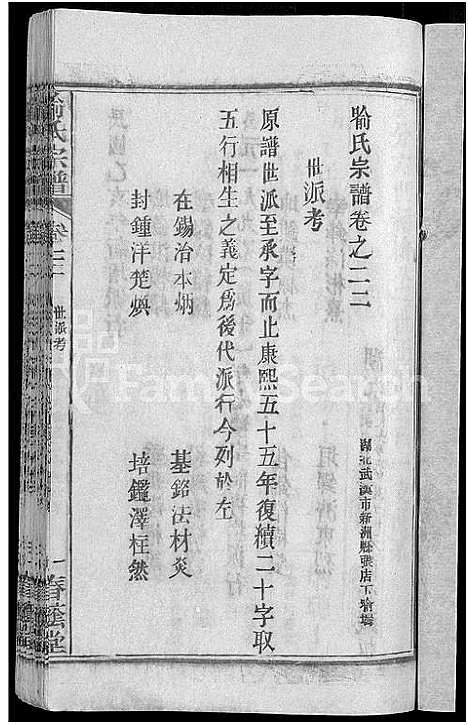 喻氏宗譜卷之二三
湖北武漢市新洲縣張店下喻塆
世派考
原譜世派至承字而止康熙五十五年復續二十字取
五行相生之義定爲後代派行今列於左
在錫治本炳 基銘法材炎
封鍾洋楚煥 培鑑澤枉然
喻氏宗譜 卷二三 世派考 一 春蔭堂
FamilySearch